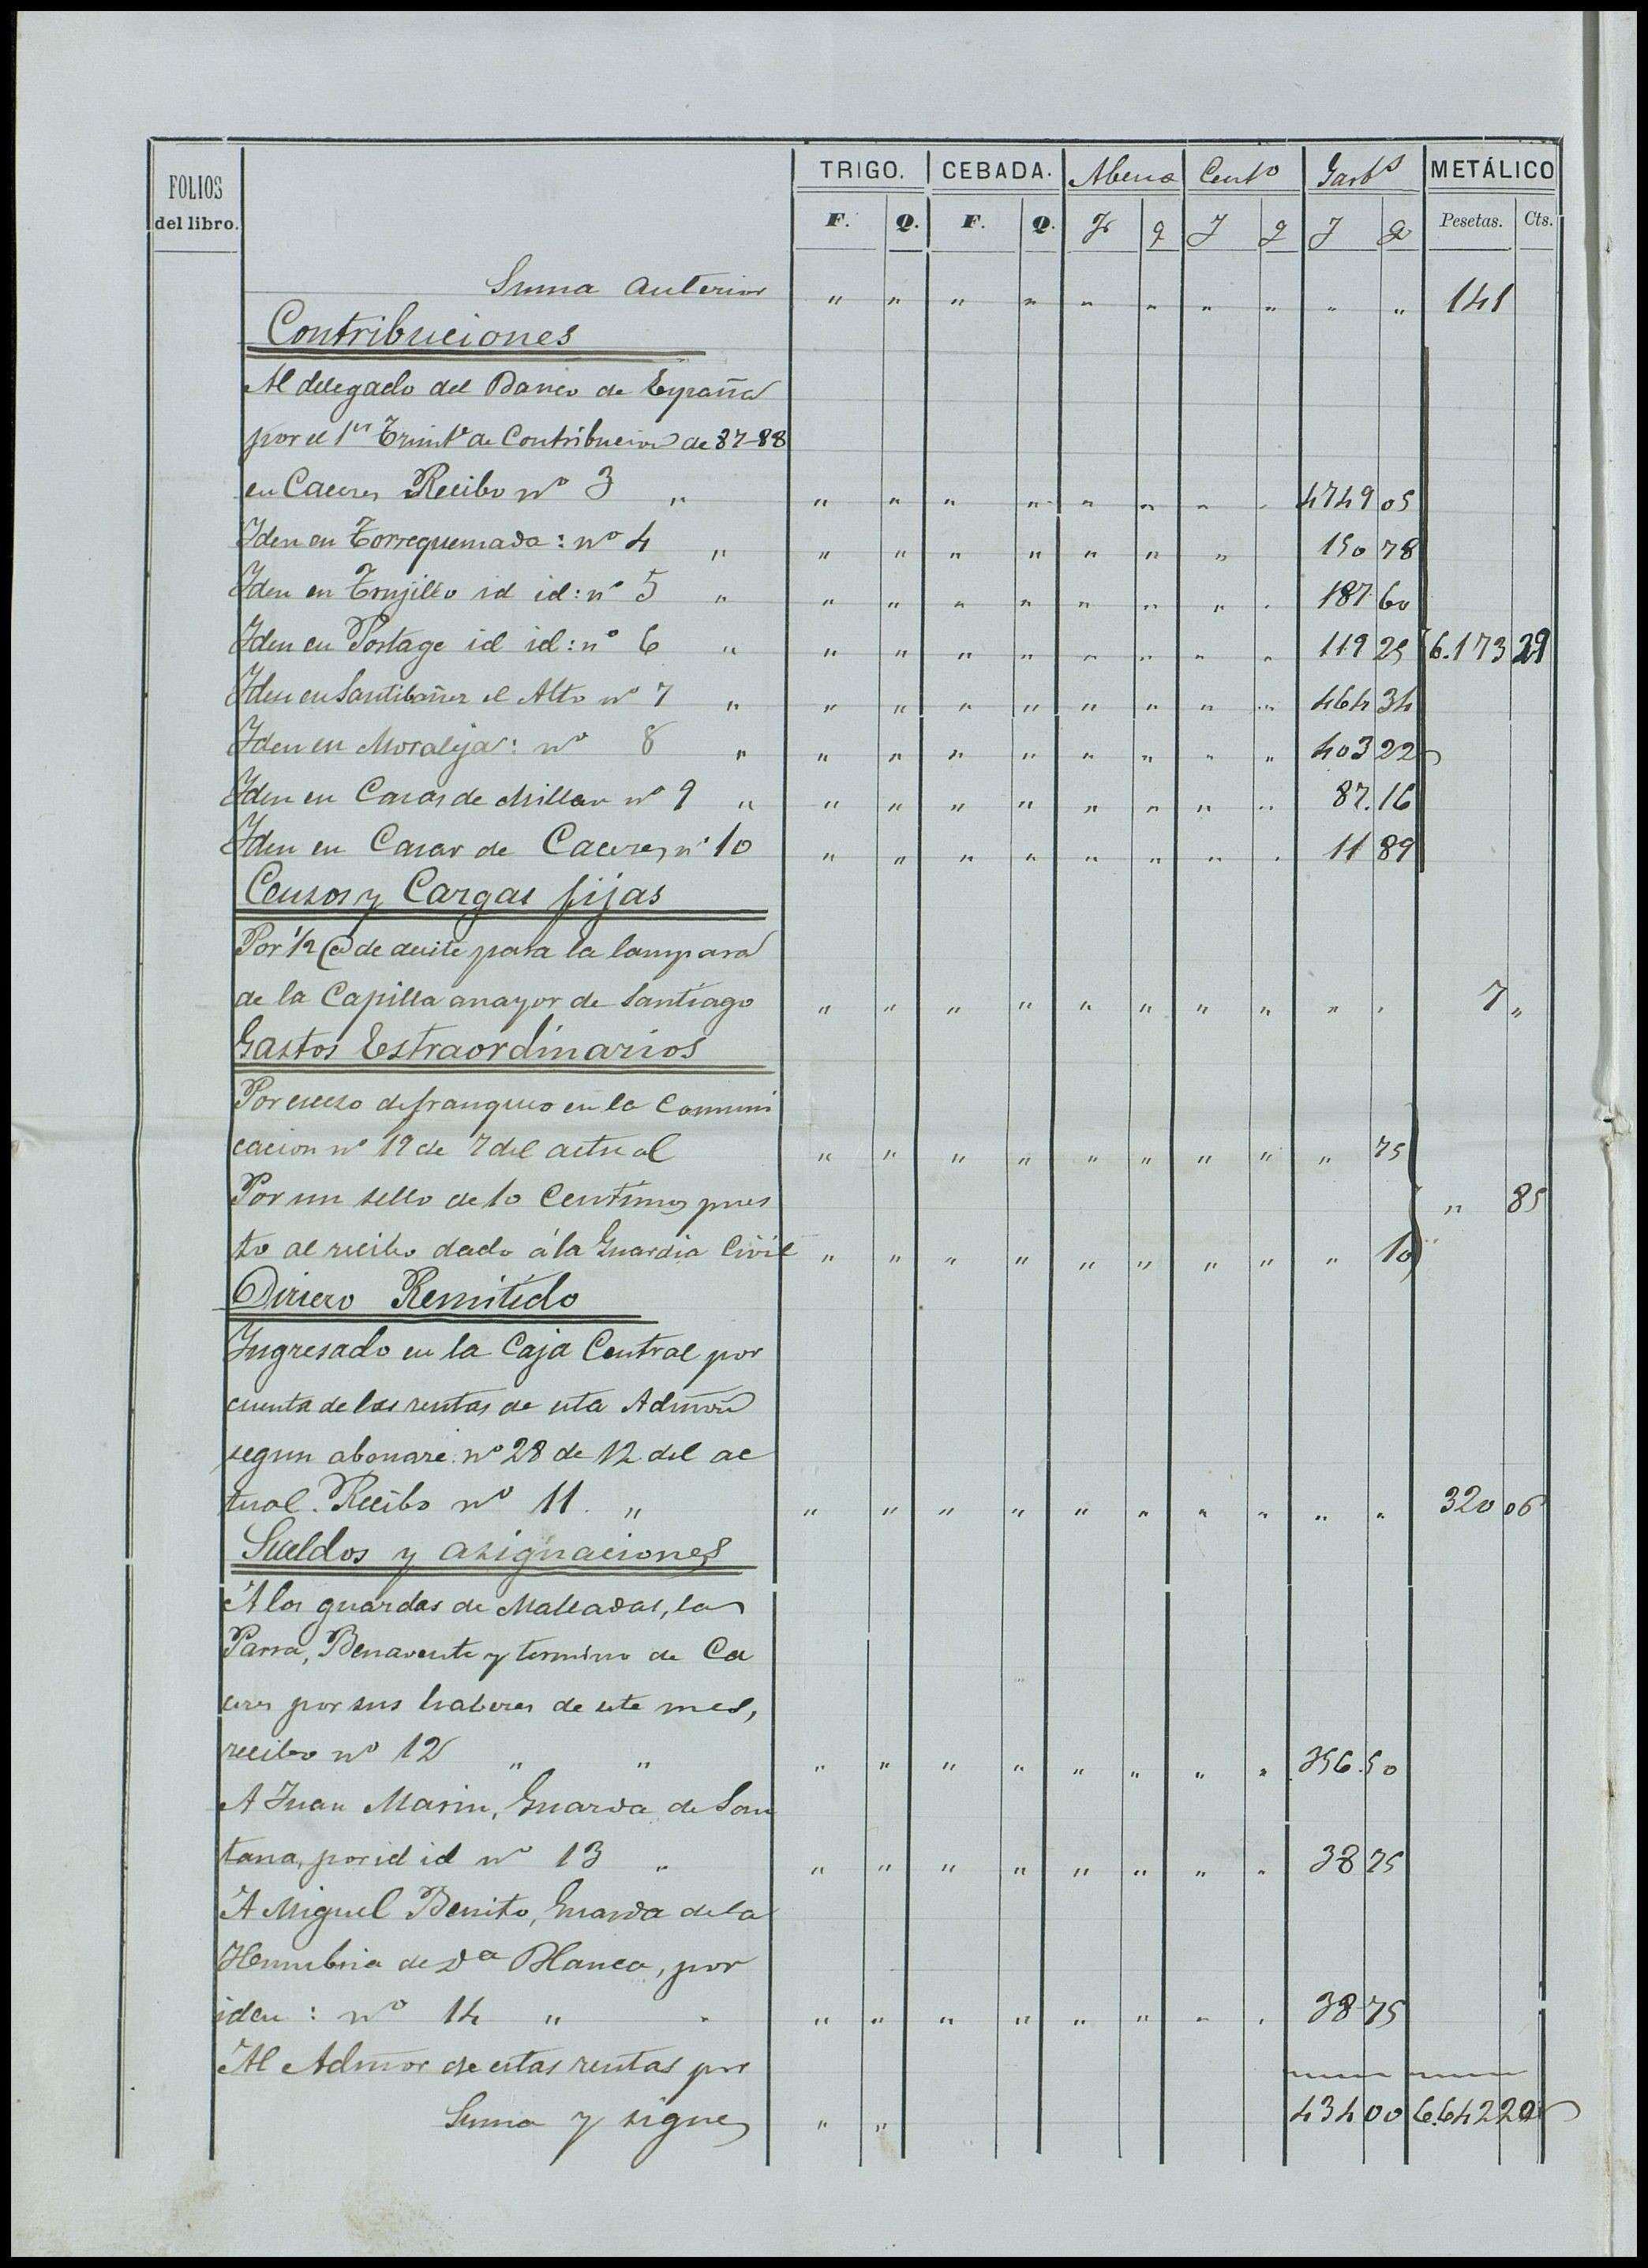 FOLIOS del libro. TRIGO. CEBADA. Abena Cent⁰ Garb⁵ METÁLICO
F. Q. F. Q. F q F q F q Pesetas. Cts.
Suma anterior " " " " " " " " " " 141
Contribuciones
Al delegado del Banco de España
por el 1er Trimte de Contribucion de 87-88
en Caceres Recibo nº 3 " " " " " " " " " 4749 05
Iden en Torrequemada: nº 4 " " " " " " " " 150 78
Iden en Trujillo id id: nº 5 " " " " " " " " " 187 60
Iden en Portage id id: nº 6 " " " " " " " " " 119 25 6.173 29
Iden en Santibañez el Alto nº 7 " " " " " " " " " 464 34
Iden en Moraleja: nº 8 " " " " " " " " " 403 22
Iden en Casas de Millan nº 9 " " " " " " " " " 87.16
Iden en Casar de Caceres nº 10 " " " " " " " " 11 89
Censos y Cargas fijas
Por 1/2 @ de aceite para la lampara
de la Capilla mayor de Santiago " " " " " " " " " " 7 "
Gastos Estraordinarios
Por exceso de franqueo en la Comuni
cacion nº 19 de 7 del actual " " " " " " " " " 75
Por un sello de 10 Centimos pues
" 85
to al recibo dado á la Guardia Civil " " " " " " " " " 10
Dinero Remitido
Ingresado en la Caja Central por
cuenta de las rentas de esta Admon
segun abonaré nº 28 de 12 del ac
tual. Recibo nº 11. " " " " " " " " " " " 320 06
Sueldos y asignaciones
A los guardas de Malladas, la
Parra, Benavente y termino de Ca
ceres por sus haberes de este mes,
recibo nº 12 " " " " " " " " " " 356.50
A Juan Marin, Guarda de San
tana, por id id nº 13 " " " " " " " " " 38 75
A Miguel Benito, Guarda de la
Henumbria de Dª Blanca, por
iden: nº 14 " " " " " " " " " " 38 75
Al Admor de estas rentas por
Suma y sigue " " 434 00 6.642 20